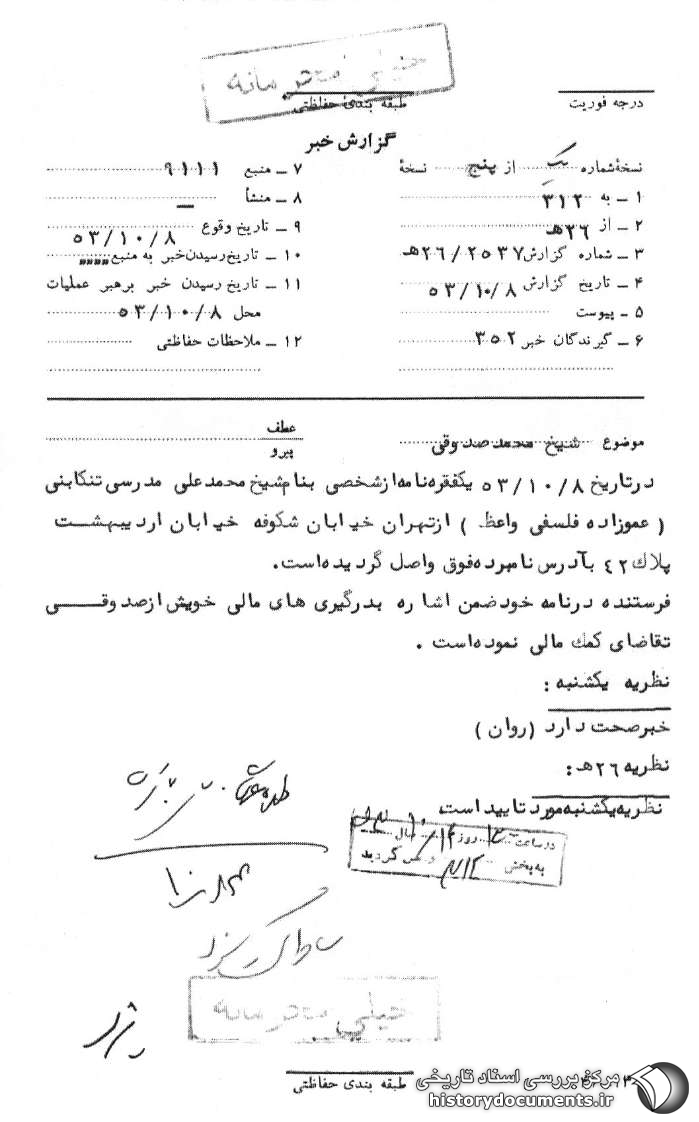 خیلی محرمانه
درجه فوریت
طبقه بندی حفاظتی
گزارش خبر
نسخهٔ شماره یک از پنج نسخهٔ
۱ ـ به ۳۱۲
۲ ـ از ۲۶هـ
۳ ـ شماره گزارش ۲۶/۲۵۳۷هـ
۴ ـ تاریخ گزارش ۵۳/۱۰/۸
۵ ـ پیوست
۶ ـ گیرندگان خبر ۳۵۲
۷ ـ منبع ۹۱۱۱
۸ ـ منشأ ـ
۹ ـ تاریخ وقوع ۵۳/۱۰/۸
۱۰ ـ تاریخ رسیدن خبر به منبع ،،،،،،
۱۱ ـ تاریخ رسیدن خبر برهبر عملیات
محل ۵۳/۱۰/۸
۱۲ ـ ملاحظات حفاظتی
موضوع شیخ محمد صدوقی
عطف
پیرو
درتاریخ ۵۳/۱۰/۸ یکفقره نامه ازشخصی بنام شیخ محمدعلی مدرسی تنکابنی
( عموزاده فلسفی واعظ ) ازتهران خیابان شکوفه خیابان اردیبهشت
پلاك ٤۲ بآدرس نامبرده فوق واصل گردیده‌است.
فرستنده درنامه خودضمن اشاره بدرگیری های مالی خویش ازصدوقـــی
تقاضای کمك مالی نموده‌است .
نظریه یکشنبه :
خبرصحت دارد (روان )
نظریه ۲۶هـ :
نظریه یکشنبه مورد تایید است
در ساعت روز سال
به بخش ۳۱۲ گردید
خیلی محرمانه
طبقه بندی حفاظتی
مرکز بررسی اسناد تاریخی
historydocuments.ir